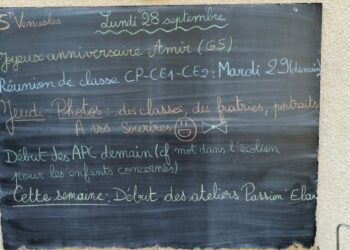 St Venceslas
Lundi 28 septembre
Joyeux anniversaire Amir (GS)
Réunion de classe CP-CE1-CE2 : Mardi 29 (demain)
Jeudi : Photos : des classes, des fratries, portraits
A vos sourires
Début des APC demain (cf mot dans l'écolien
pour les enfants concernés)
Cette semaine : Début des ateliers Passion' Elan